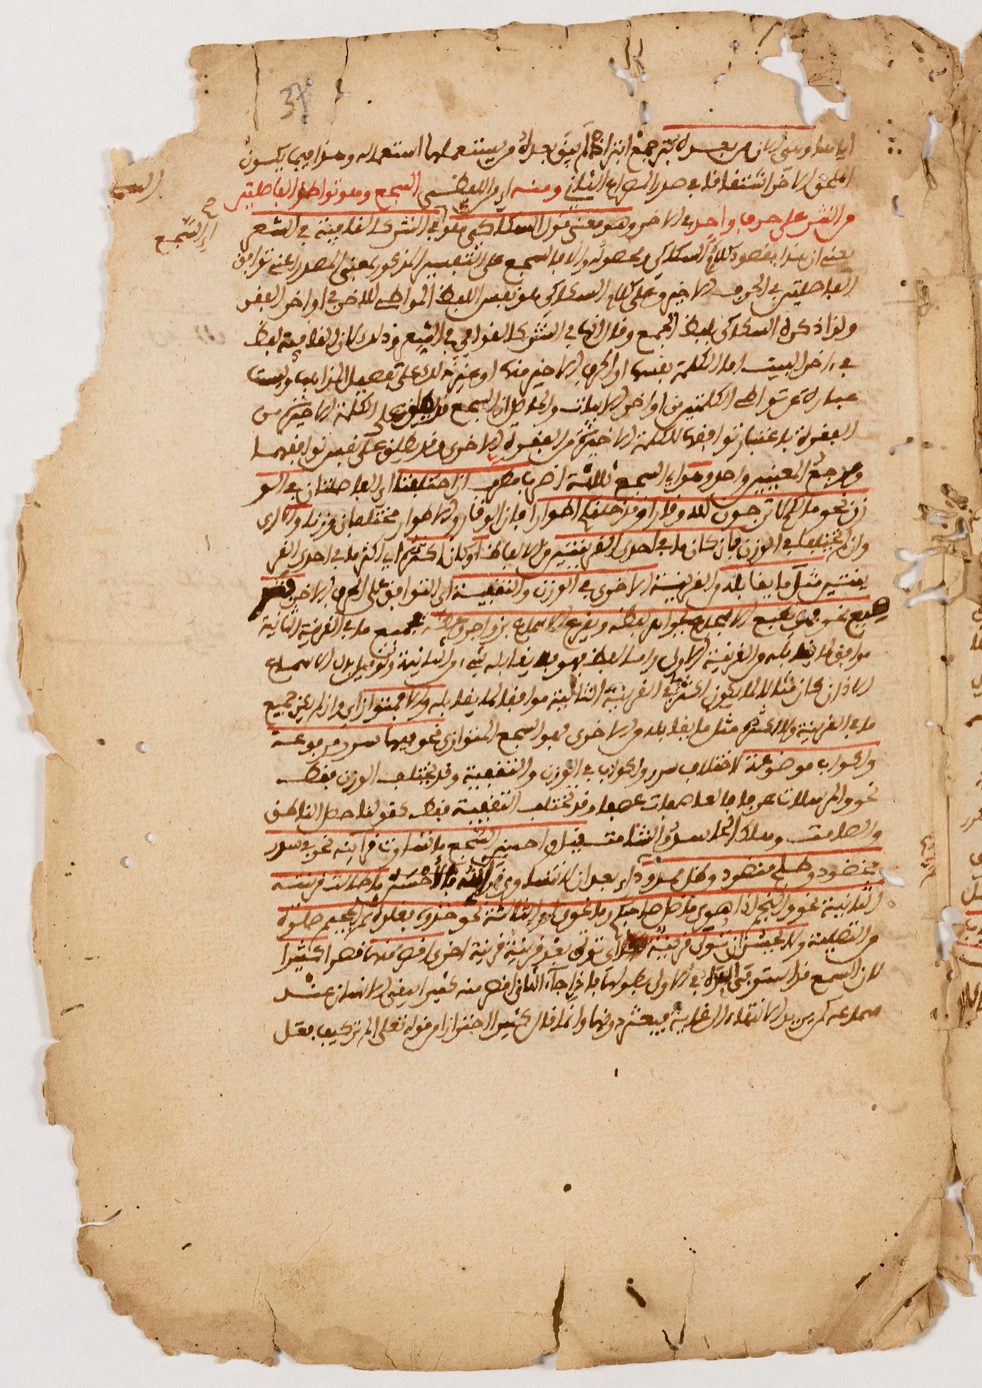 الملحق الآخر اشتقاقا في صدر المصراع الثاني ومنه أي من اللفظي السجع وهو تواطؤ الفاصلتين
من النثر على حرف واحد في الآخر وهو معنى قول السكاكي هو في النثر كالقافية في الشعر
يعني ان هذا مقصود كلام السكاكي ومحصوله والا فالسجع على التفسير المذكور بمعنى المصدر اعني توافق
الفاصلتين في الحرف الاخير وعلى كلام السكاكي هو نفس اللفظ المتواطئ الآخر في اواخر الفقر
ولذا ذكره السكاكي بلفظ الجمع وقال انها في النثر كالقوافي في الشعر وذلك لان القافية لفظ
في آخر البيت اما الكلمة نفسها او الحرف الاخير منها او غير ذلك على تفصيل المذاهب وليست
عبارة عن تواطؤ الكلمتين من اواخر الابيات والحاصل ان السجع قد يطلق على الكلمة الاخيرة من
الفقرة باعتبار توافقها للكلمة الاخيرة من الفقرة الاخرى وقد يطلق على نفس توافقهما
ومرجع المعنيين واحد وهو اي السجع ثلاثة اضرب مطرف ان اختلفتا اي الفاصلتان في الو
زن نحو ما لكم لا ترجون لله وقارا وقد خلقكم اطوارا فان الوقار والاطوار مختلفان وزنا والا اي
وان لم يختلفا في الوزن فان كان ما في احدى القرينتين من الالفاظ او كان اكثره اي اكثر ما في احدى القر
ينتين مثل ما يقابله من القرينة الاخرى في الوزن والتقفية اي التوافق على الحرف الاخير فتر
صيع نحو فهو يطبع الاسجاع بجواهر لفظه ويقرع الاسماع بزواجر وعظه فجميع ما في القرينة الثانية
موافق لما يقابله من القرينة الاولى واما لفظ فهو فلا يقابله شيء من الثانية ولو قيل بدل الاسماع
الاذان كان مثالا لما يكون اكثر ما في القرينة الثانية موافقا لما يقابله والا فمتواز اي وان لم يكن جميع
ما في القرينة ولا اكثره مثل ما يقابله من الاخرى فهو السجع المتوازي نحو فيها سرر مرفوعة
واكواب موضوعة لاختلاف سرر واكواب في الوزن والتقفية وقد يختلف الوزن فقط
نحو والمرسلات عرفا فالعاصفات عصفا وقد تختلف التقفية فقط كقولنا حصل الناطق
والصامت وهلك الحاسد والشامت قيل واحسن السجع ما تساوت قرائنه نحو في سدر
مخضود وطلح منضود وظل ممدود اي بعد ان لا تتساوى قرائنه فالاحسن ما طالت قرينته
الثانية نحو والنجم اذا هوى ما ضل صاحبكم وما غوى او الثالثة نحو خذوه فغلوه ثم الجحيم صلوه
من التصلية ولا يحسن ان تؤتى قرينة اي تؤتى بعد قرينة قرينة اخرى اقصر منها قصرا كثيرا
لان السجع قد استوفى امده في الاول بطوله فاذا جاء الثاني اقصر منه كثيرا يبقى الانسان عند
سماعه كمن يريد الانتهاء الى غاية فيعثر دونها وانما قال كثيرا احترازا من قوله تعالى الم تر كيف فعل
اي السجع
37